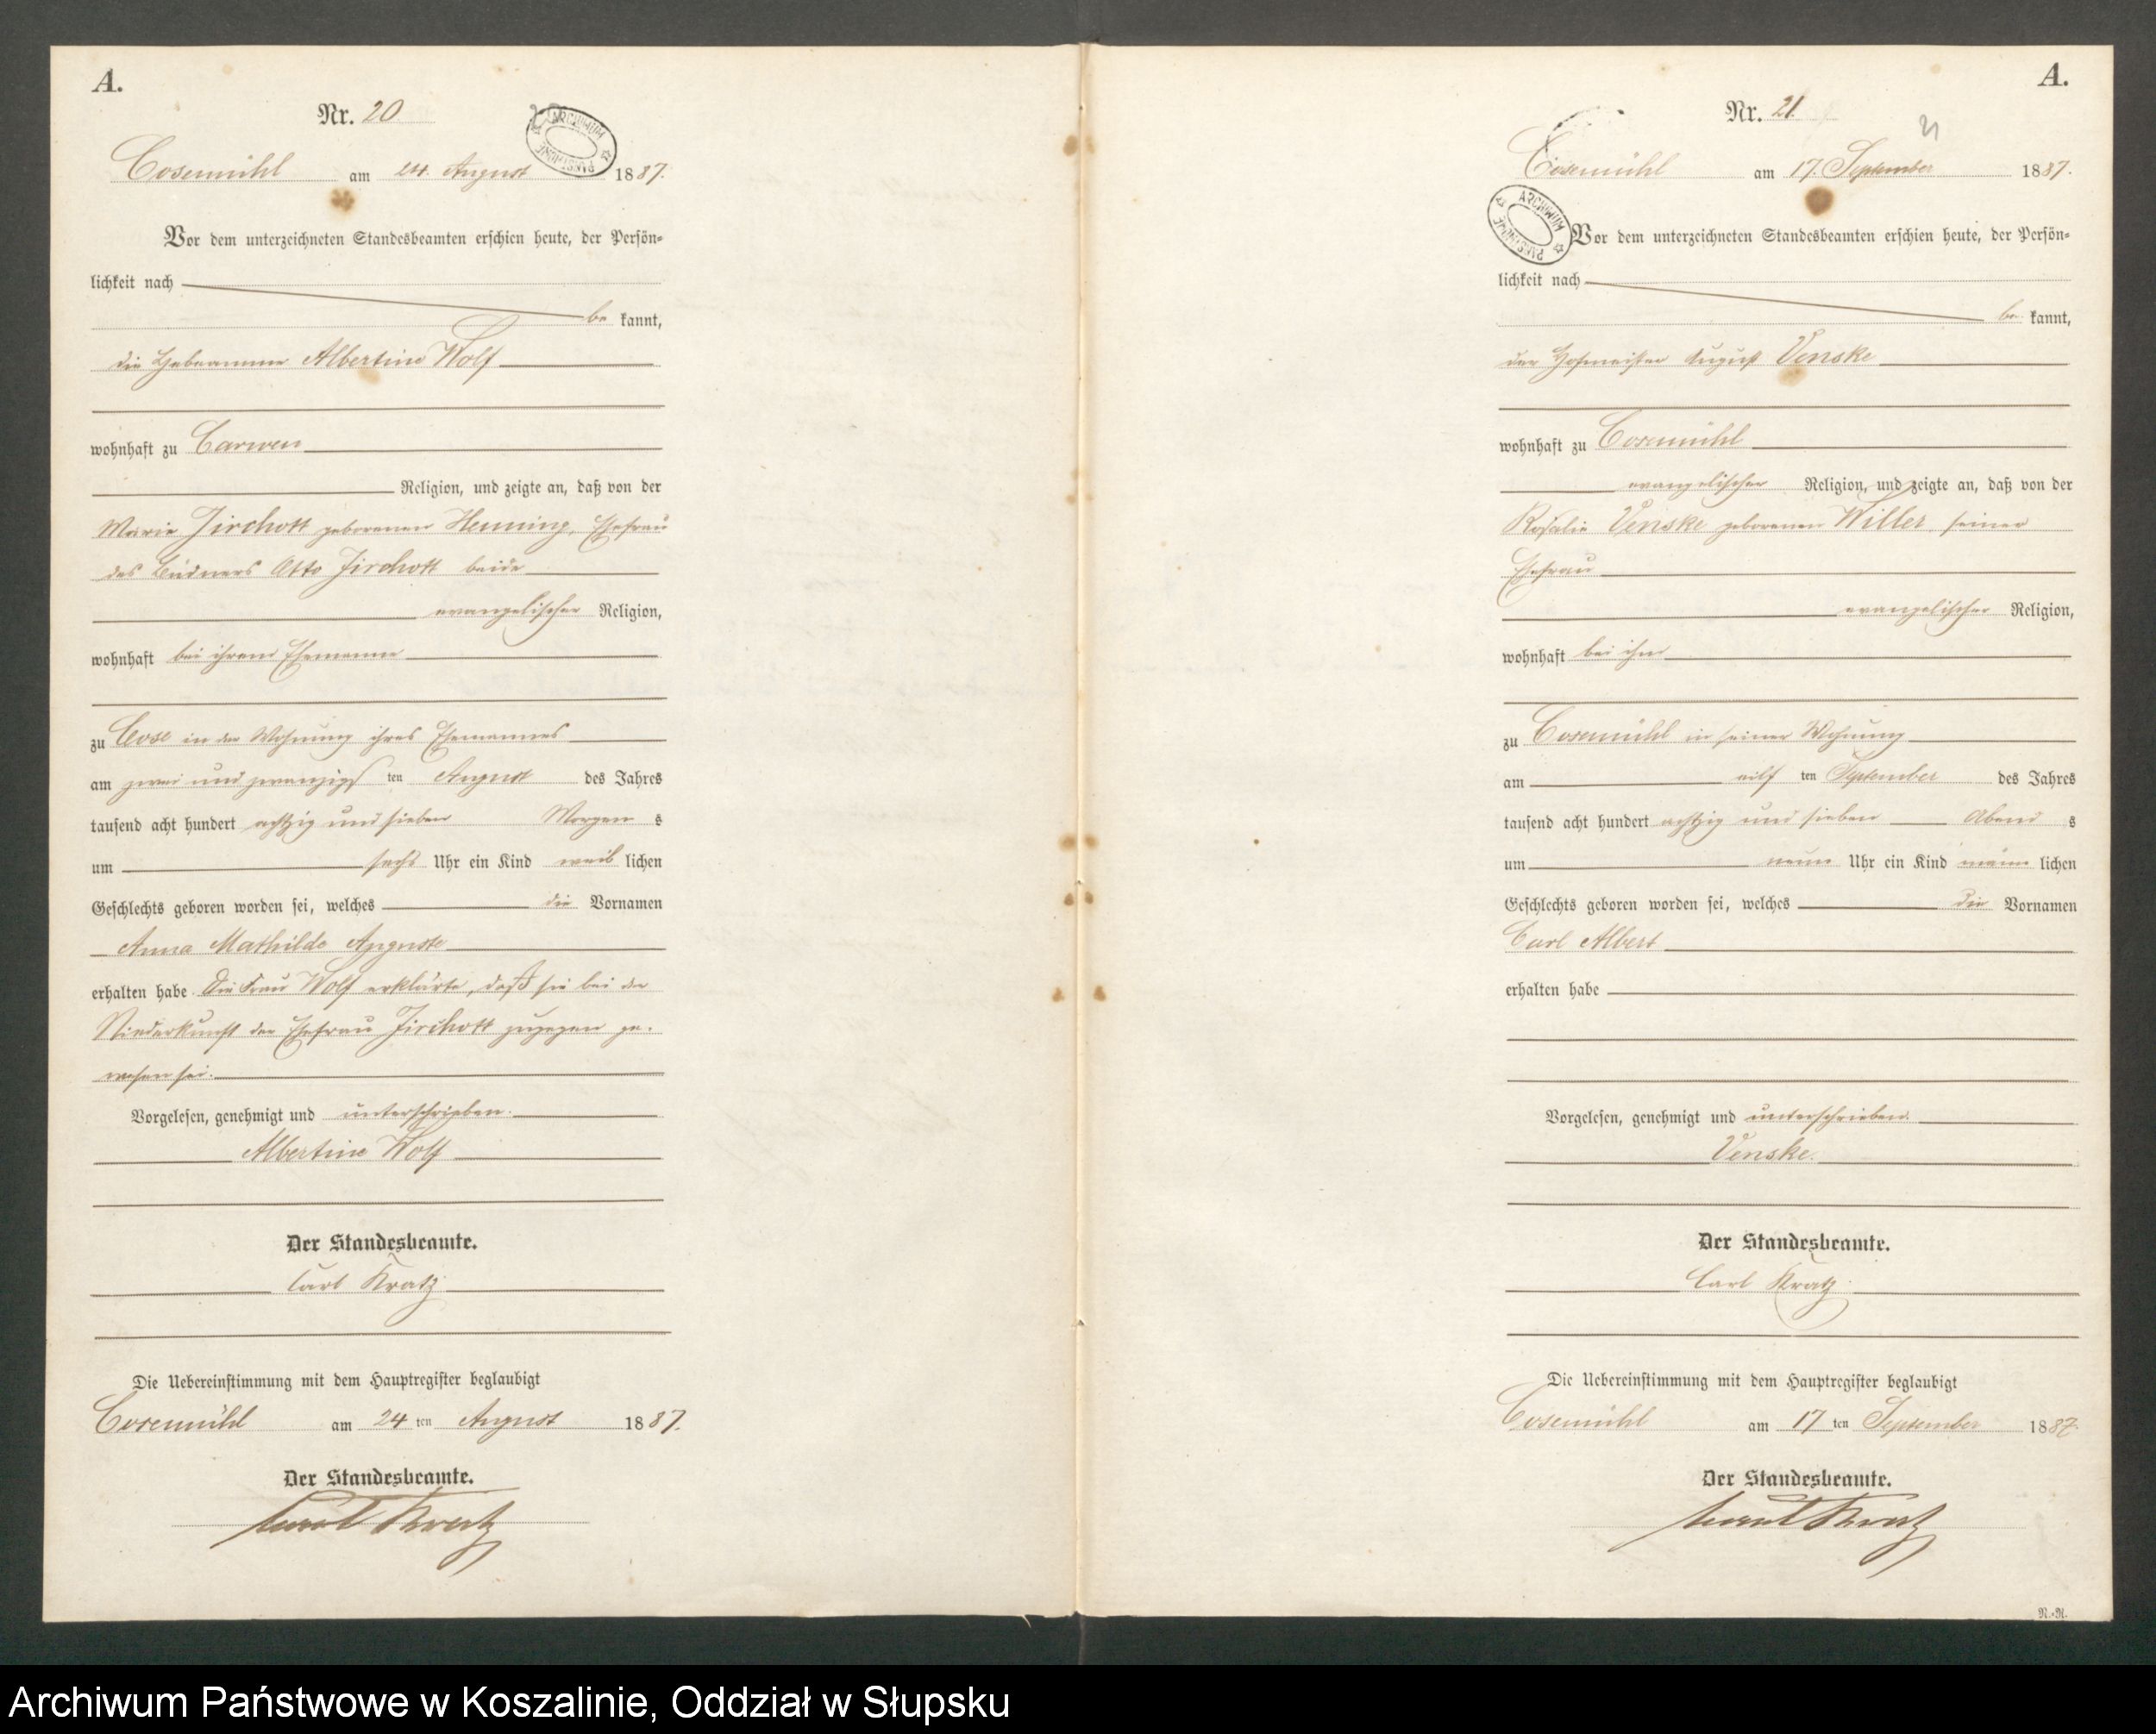 A.
Nr. 20
ARCHIWUM PAŃSTWOWE
Cosemühl am 24. August 1887.
Vor dem unterzeichneten Standesbeamten erschien heute, der Persön-
lichkeit nach
be kannt,
die Hebeamme Albertine Wolf
wohnhaft zu Carwen
Religion, und zeigte an, daß von der
Marie Jirchott geborenen Henning, Ehefrau
des Büdners Otto Jirchott beide
evangelischer Religion,
wohnhaft bei ihrem Ehemanne
zu Cose in der Wohnung ihres Ehemannes
am zwei und zwanzigs ten August des Jahres
tausend acht hundert achtzig und sieben Morgen s
um sechs Uhr ein Kind weib lichen
Geschlechts geboren worden sei, welches die Vornamen
Anna Mathilde Auguste
erhalten habe. Die Frau Wolf erklärte, daß sie bei der
Niederkunft der Ehefrau Jirchott zugegen ge-
wesen sei.
Vorgelesen, genehmigt und unterschrieben.
Albertine Wolf
Der Standesbeamte.
Carl Kratz.
Die Uebereinstimmung mit dem Hauptregister beglaubigt
Cosemühl am 24 ten August 1887.
Der Standesbeamte.
Carl Kratz
A.
Nr. 21.
21
Cosemühl am 17. September 1887.
ARCHIWUM PAŃSTWOWE
Vor dem unterzeichneten Standesbeamten erschien heute, der Persön-
lichkeit nach
be kannt,
der Hofmeister August Venske
wohnhaft zu Cosemühl
evangelischer Religion, und zeigte an, daß von der
Rosalie Venske geborenen Willer, seiner
Ehefrau
evangelischer Religion,
wohnhaft bei ihm
zu Cosemühl in seiner Wohnung
am eilf ten September des Jahres
tausend acht hundert achtzig und sieben Abend s
um neun Uhr ein Kind männ lichen
Geschlechts geboren worden sei, welches die Vornamen
Carl Albert
erhalten habe
Vorgelesen, genehmigt und unterschrieben.
Venske.
Der Standesbeamte.
Carl Kratz.
Die Uebereinstimmung mit dem Hauptregister beglaubigt
Cosemühl am 17 ten September 1887.
Der Standesbeamte.
Carl Kratz
R.-R.
Archiwum Państwowe w Koszalinie, Oddział w Słupsku